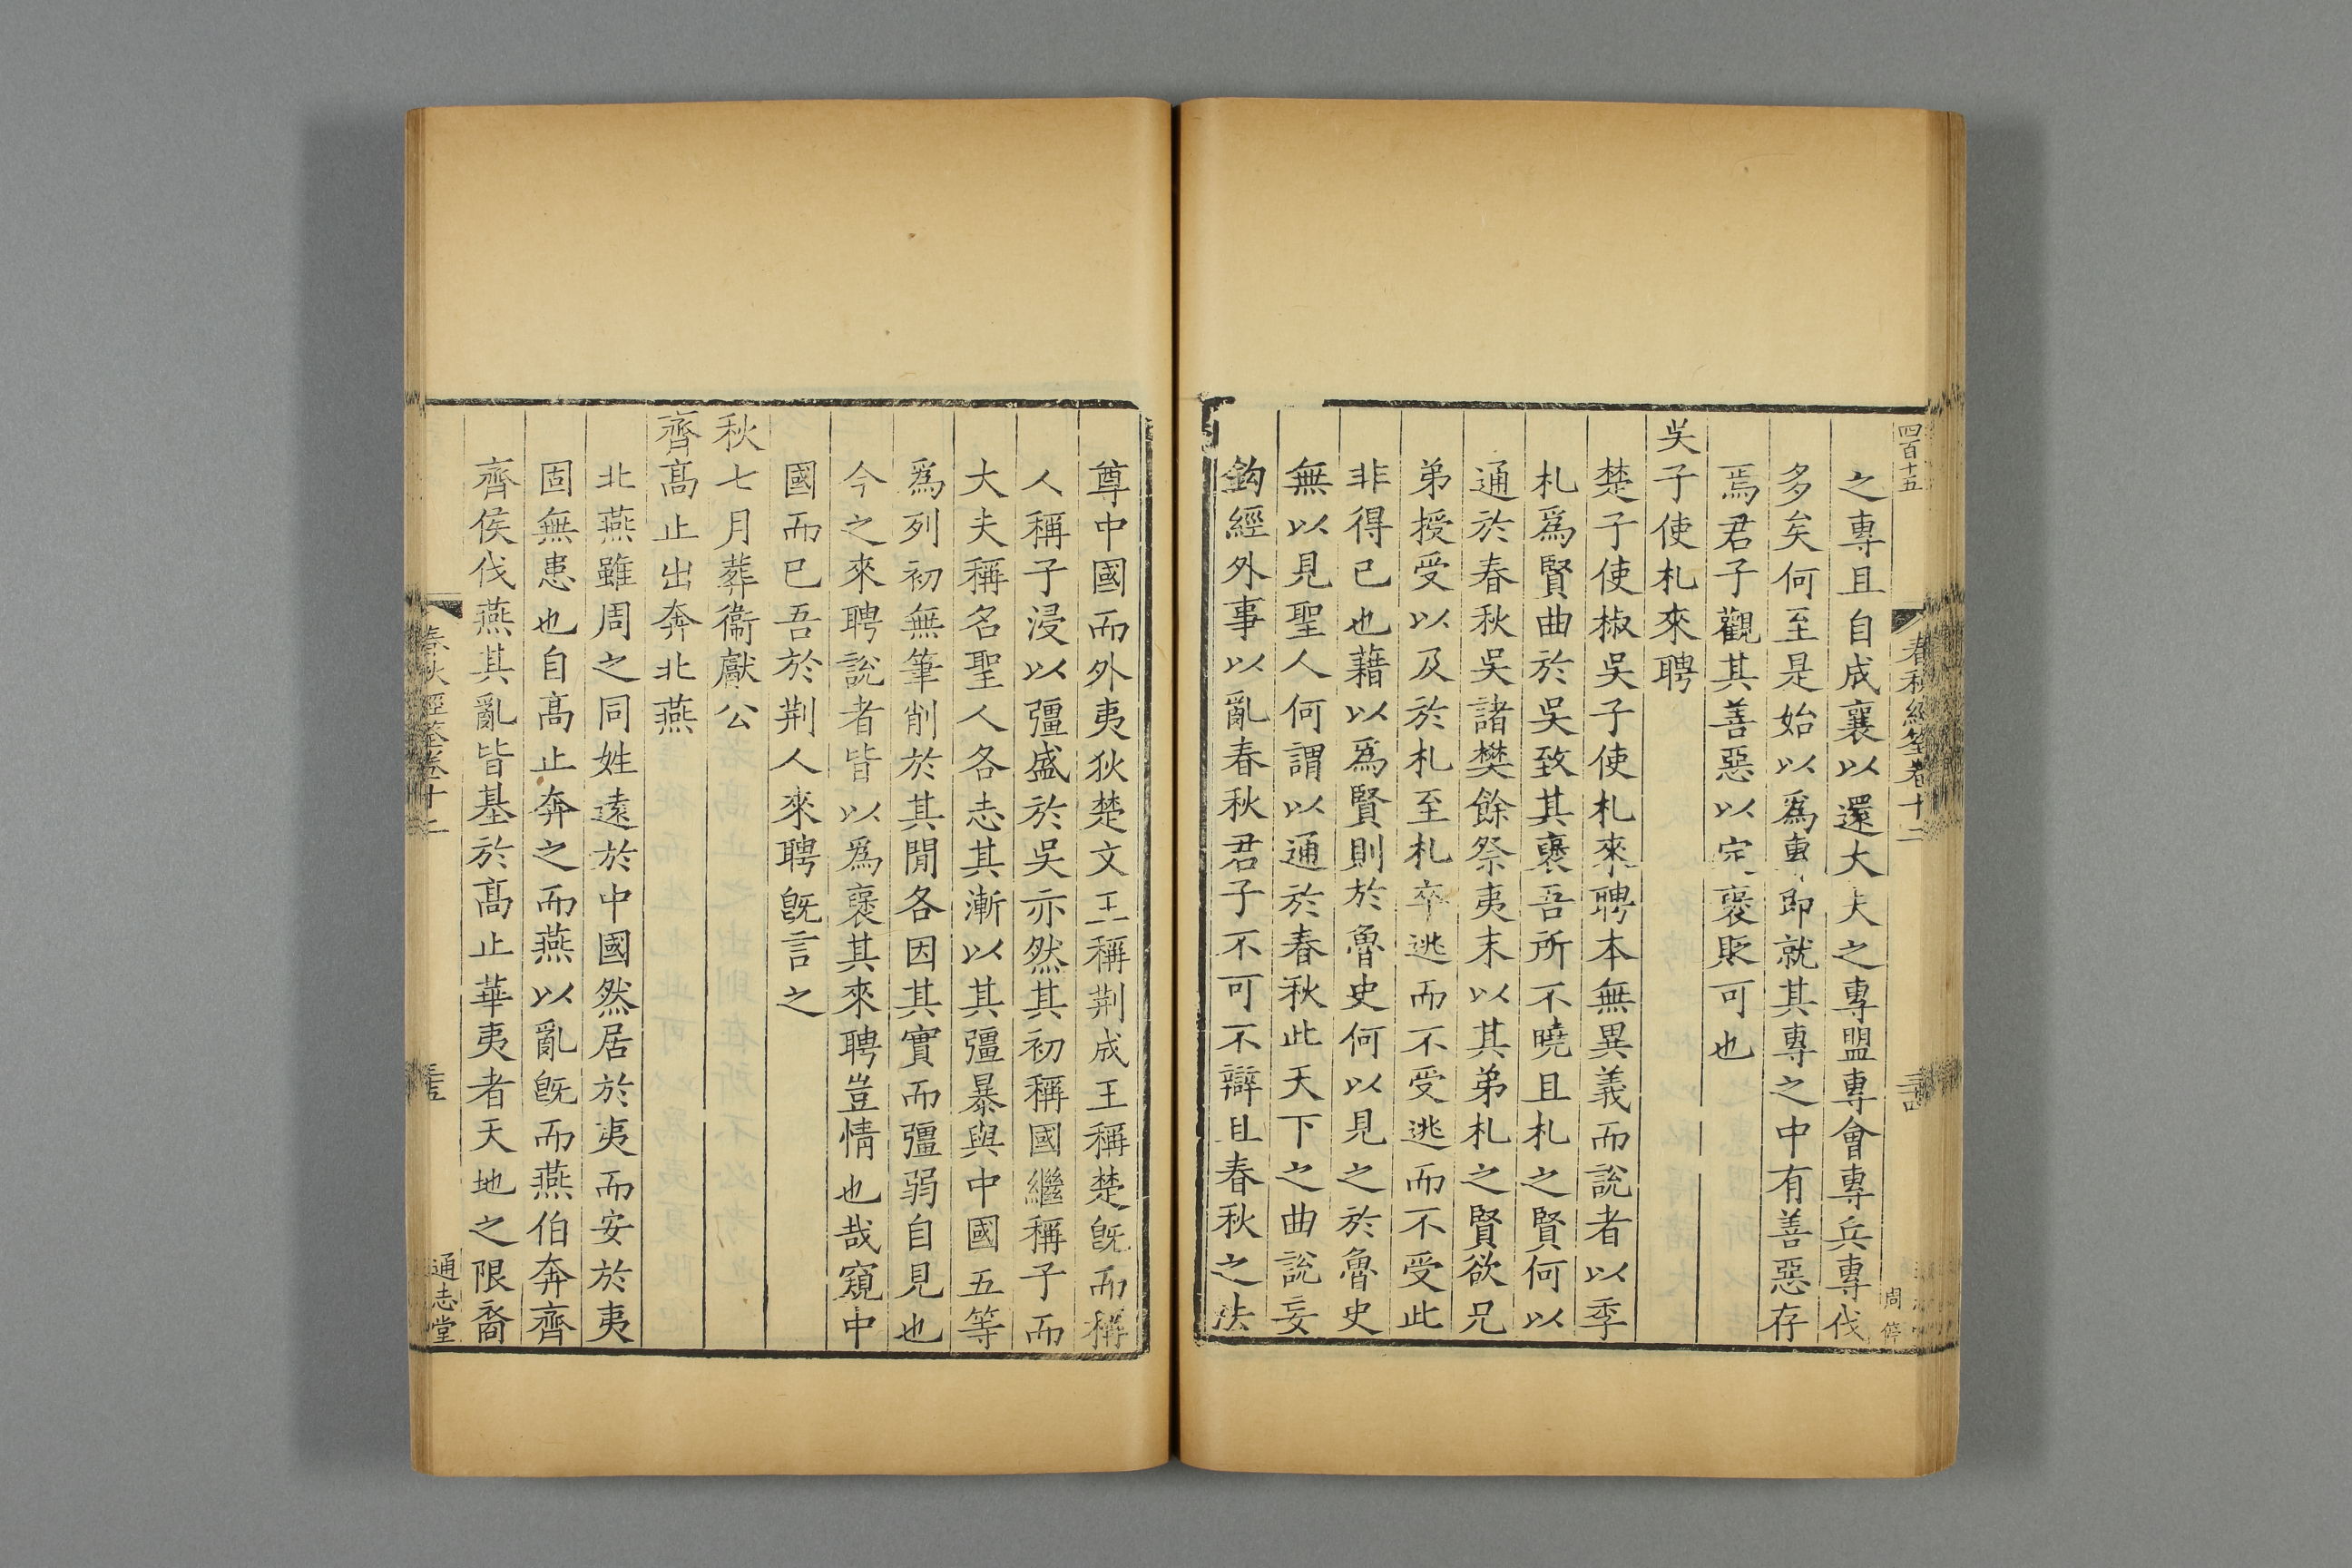 四百十五
春秋經筌卷十二
周偉
之專且自成襄以還大夫之專盟專會專兵專伐
多矣何至是始以爲專即就其專之中有善惡存
焉君子觀其善惡以定襃貶可也
吳子使札來聘
楚子使椒吳子使札來聘本無異義而說者以季
札爲賢曲於吳致其襃吾所不曉且札之賢何以
通於春秋吳諸樊餘祭夷末以其弟札之賢欲兄
弟授受以及於札至札卒逃而不受逃而不受此
非得已也藉以爲賢則於魯史何以見之於魯史
無以見聖人何謂以通於春秋此天下之曲說妄
鈎經外事以亂春秋君子不可不辯且春秋之法
尊中國而外夷狄楚文王稱荆成王稱楚旣而稱
人稱子浸以彊盛於吳亦然其初稱國繼稱子而
大夫稱名聖人各志其漸以其彊暴與中國五等
爲列初無筆削於其閒各因其實而彊弱自見也
今之來聘說者皆以爲襃其來聘豈情也哉窺中
國而已吾於荆人來聘旣言之
秋七月葬衞獻公
齊髙止出奔北燕
北燕雖周之同姓遠於中國然居於夷而安於夷
固無患也自髙止奔之而燕以亂旣而燕伯奔齊
齊侯伐燕其亂皆基於髙止華夷者天地之限裔
春秋經筌卷十二
通志堂